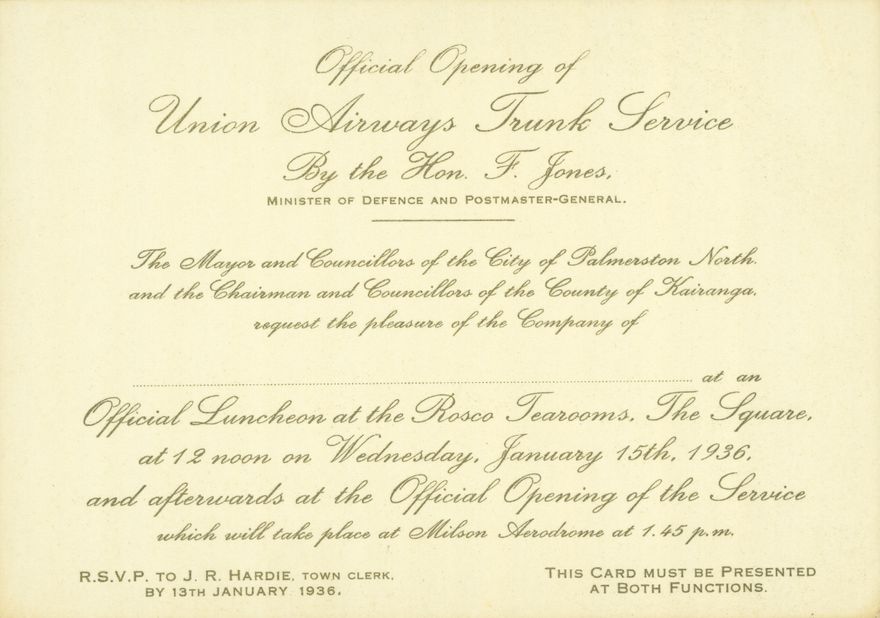 Official Opening of
Union Airways Trunk Service
By the Hon. F. Jones,
MINISTER OF DEFENCE AND POSTMASTER-GENERAL.
The Mayor and Councillors of the City of Palmerston North.
and the Chairman and Councillors of the County of Kairanga,
request the pleasure of the Company of
at an
Official Luncheon at the Rosco Tearooms, The Square,
at 12 noon on Wednesday, January 15th, 1936,
and afterwards at the Official Opening of the Service
which will take place at Milson Aerodrome at 1.45 p.m.
R.S.V.P. TO J. R. HARDIE, TOWN CLERK,
BY 13TH JANUARY 1936.
THIS CARD MUST BE PRESENTED
AT BOTH FUNCTIONS.